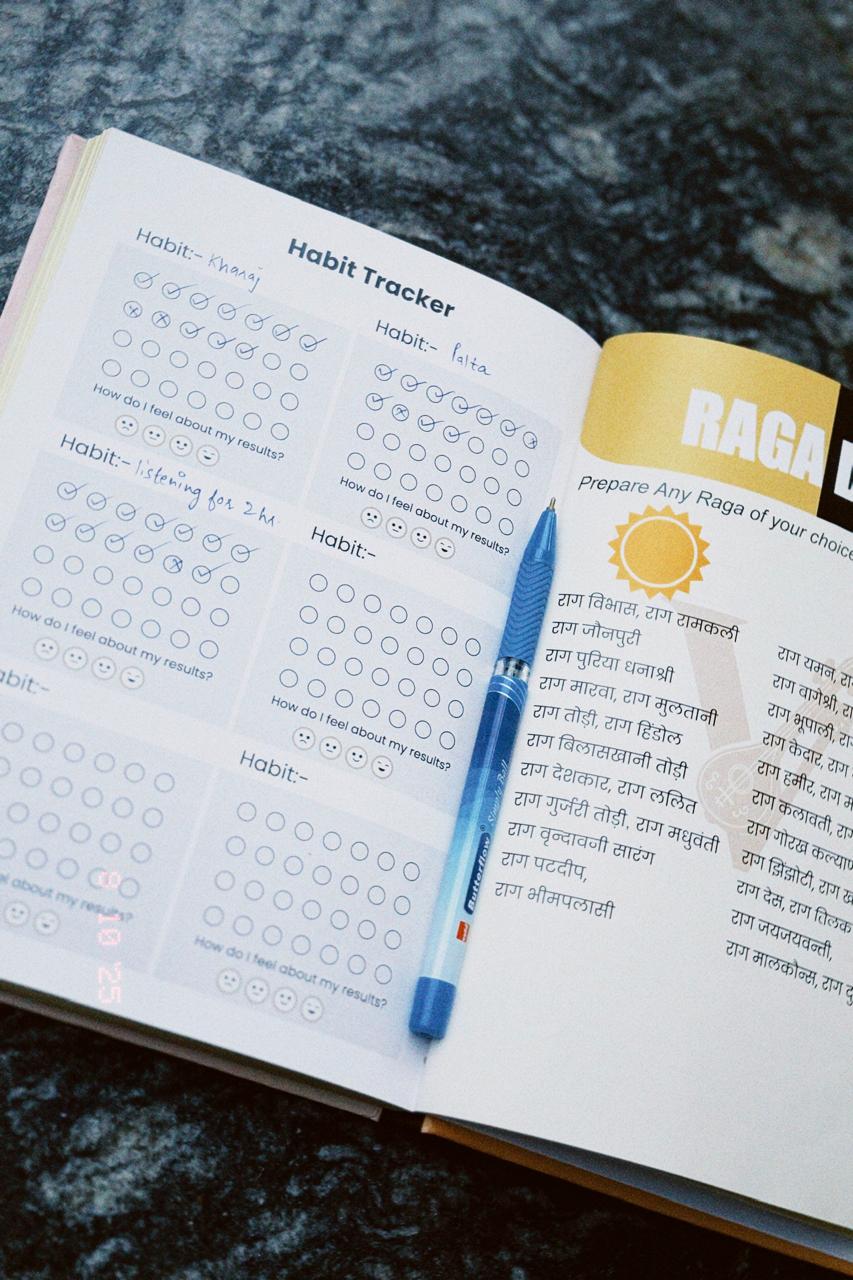 Habit Tracker
Habit:- Kharaj
How do I feel about my results?
Habit:- Palta
How do I feel about my results?
Habit:- listening for 2hr
How do I feel about my results?
Habit:-
How do I feel about my results?
bit:-
el about my results?
Habit:-
How do I feel about my results?
9 10 '25
Butterflow
Simply Ball
RAGA
Prepare Any Raga of your choice
राग विभास, राग रामकली
राग जौनपुरी
राग पुरिया धनाश्री
राग मारवा, राग मुलतानी
राग तोड़ी, राग हिंडोल
राग बिलासखानी तोड़ी
राग देशकार, राग ललित
राग गुर्जरी तोड़ी, राग मधुवंती
राग वृन्दावनी सारंग
राग पटदीप,
राग भीमपलासी
राग यमन, रा
राग बागेश्री, रा
राग भूपाली, रा
राग केदार, राग
राग हमीर, राग म
राग कलावती, राग
राग गोरख कल्याण
राग झिंझोटी, राग ख
राग देस, राग तिलक
राग जयजयवन्ती,
राग मालकौन्स, राग दु